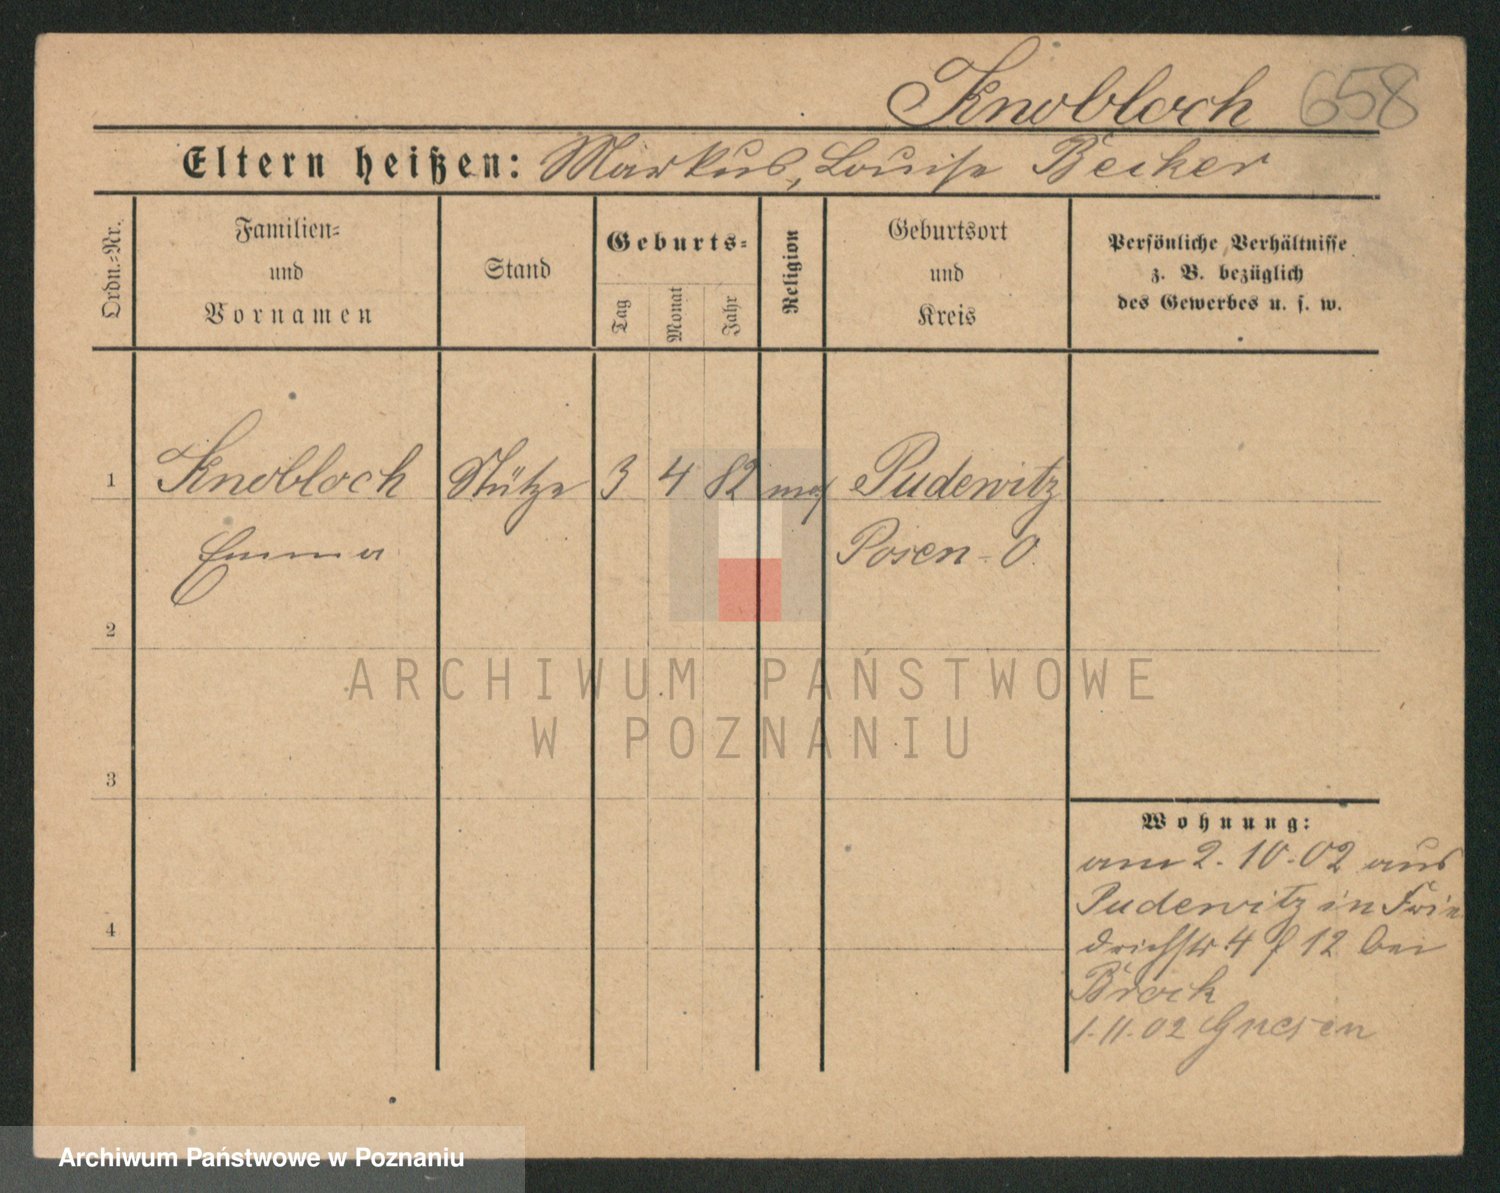 Knobloch 658
Eltern heißen: Markus, Louise Becker
Ordn.-Nr.
Familien- und Vornamen
Stand
Geburts-
Tag
Monat
Jahr
Religion
Geburtsort und Kreis
Persönliche Verhältnisse
z. B. bezüglich
des Gewerbes u. s. w.
1 Knobloch Stütze 3 4 82 mos Pudewitz
Emma Posen-O.
2
ARCHIWUM PAŃSTWOWE
W POZNANIU
3
Wohnung:
am 2.10.02 aus
Pudewitz in Frie
4 drichstr. 4 12 bei
Brock
1.11.02 Gnesen
Archiwum Państwowe w Poznaniu